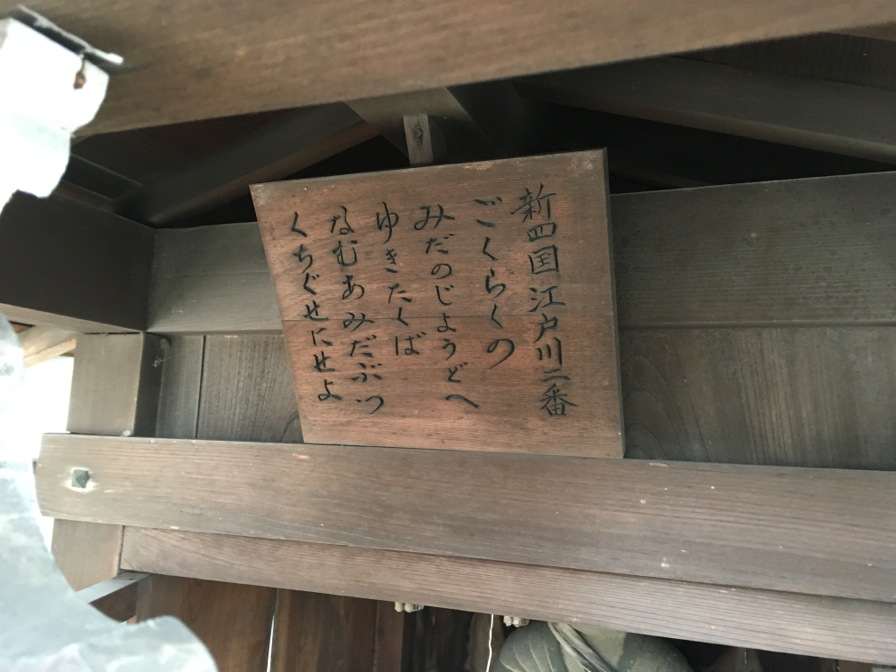 新四国江戸川二番
ごくらくの
みだのじようどへ
ゆきたくば
なむあみだぶつ
くちぐせにせよ